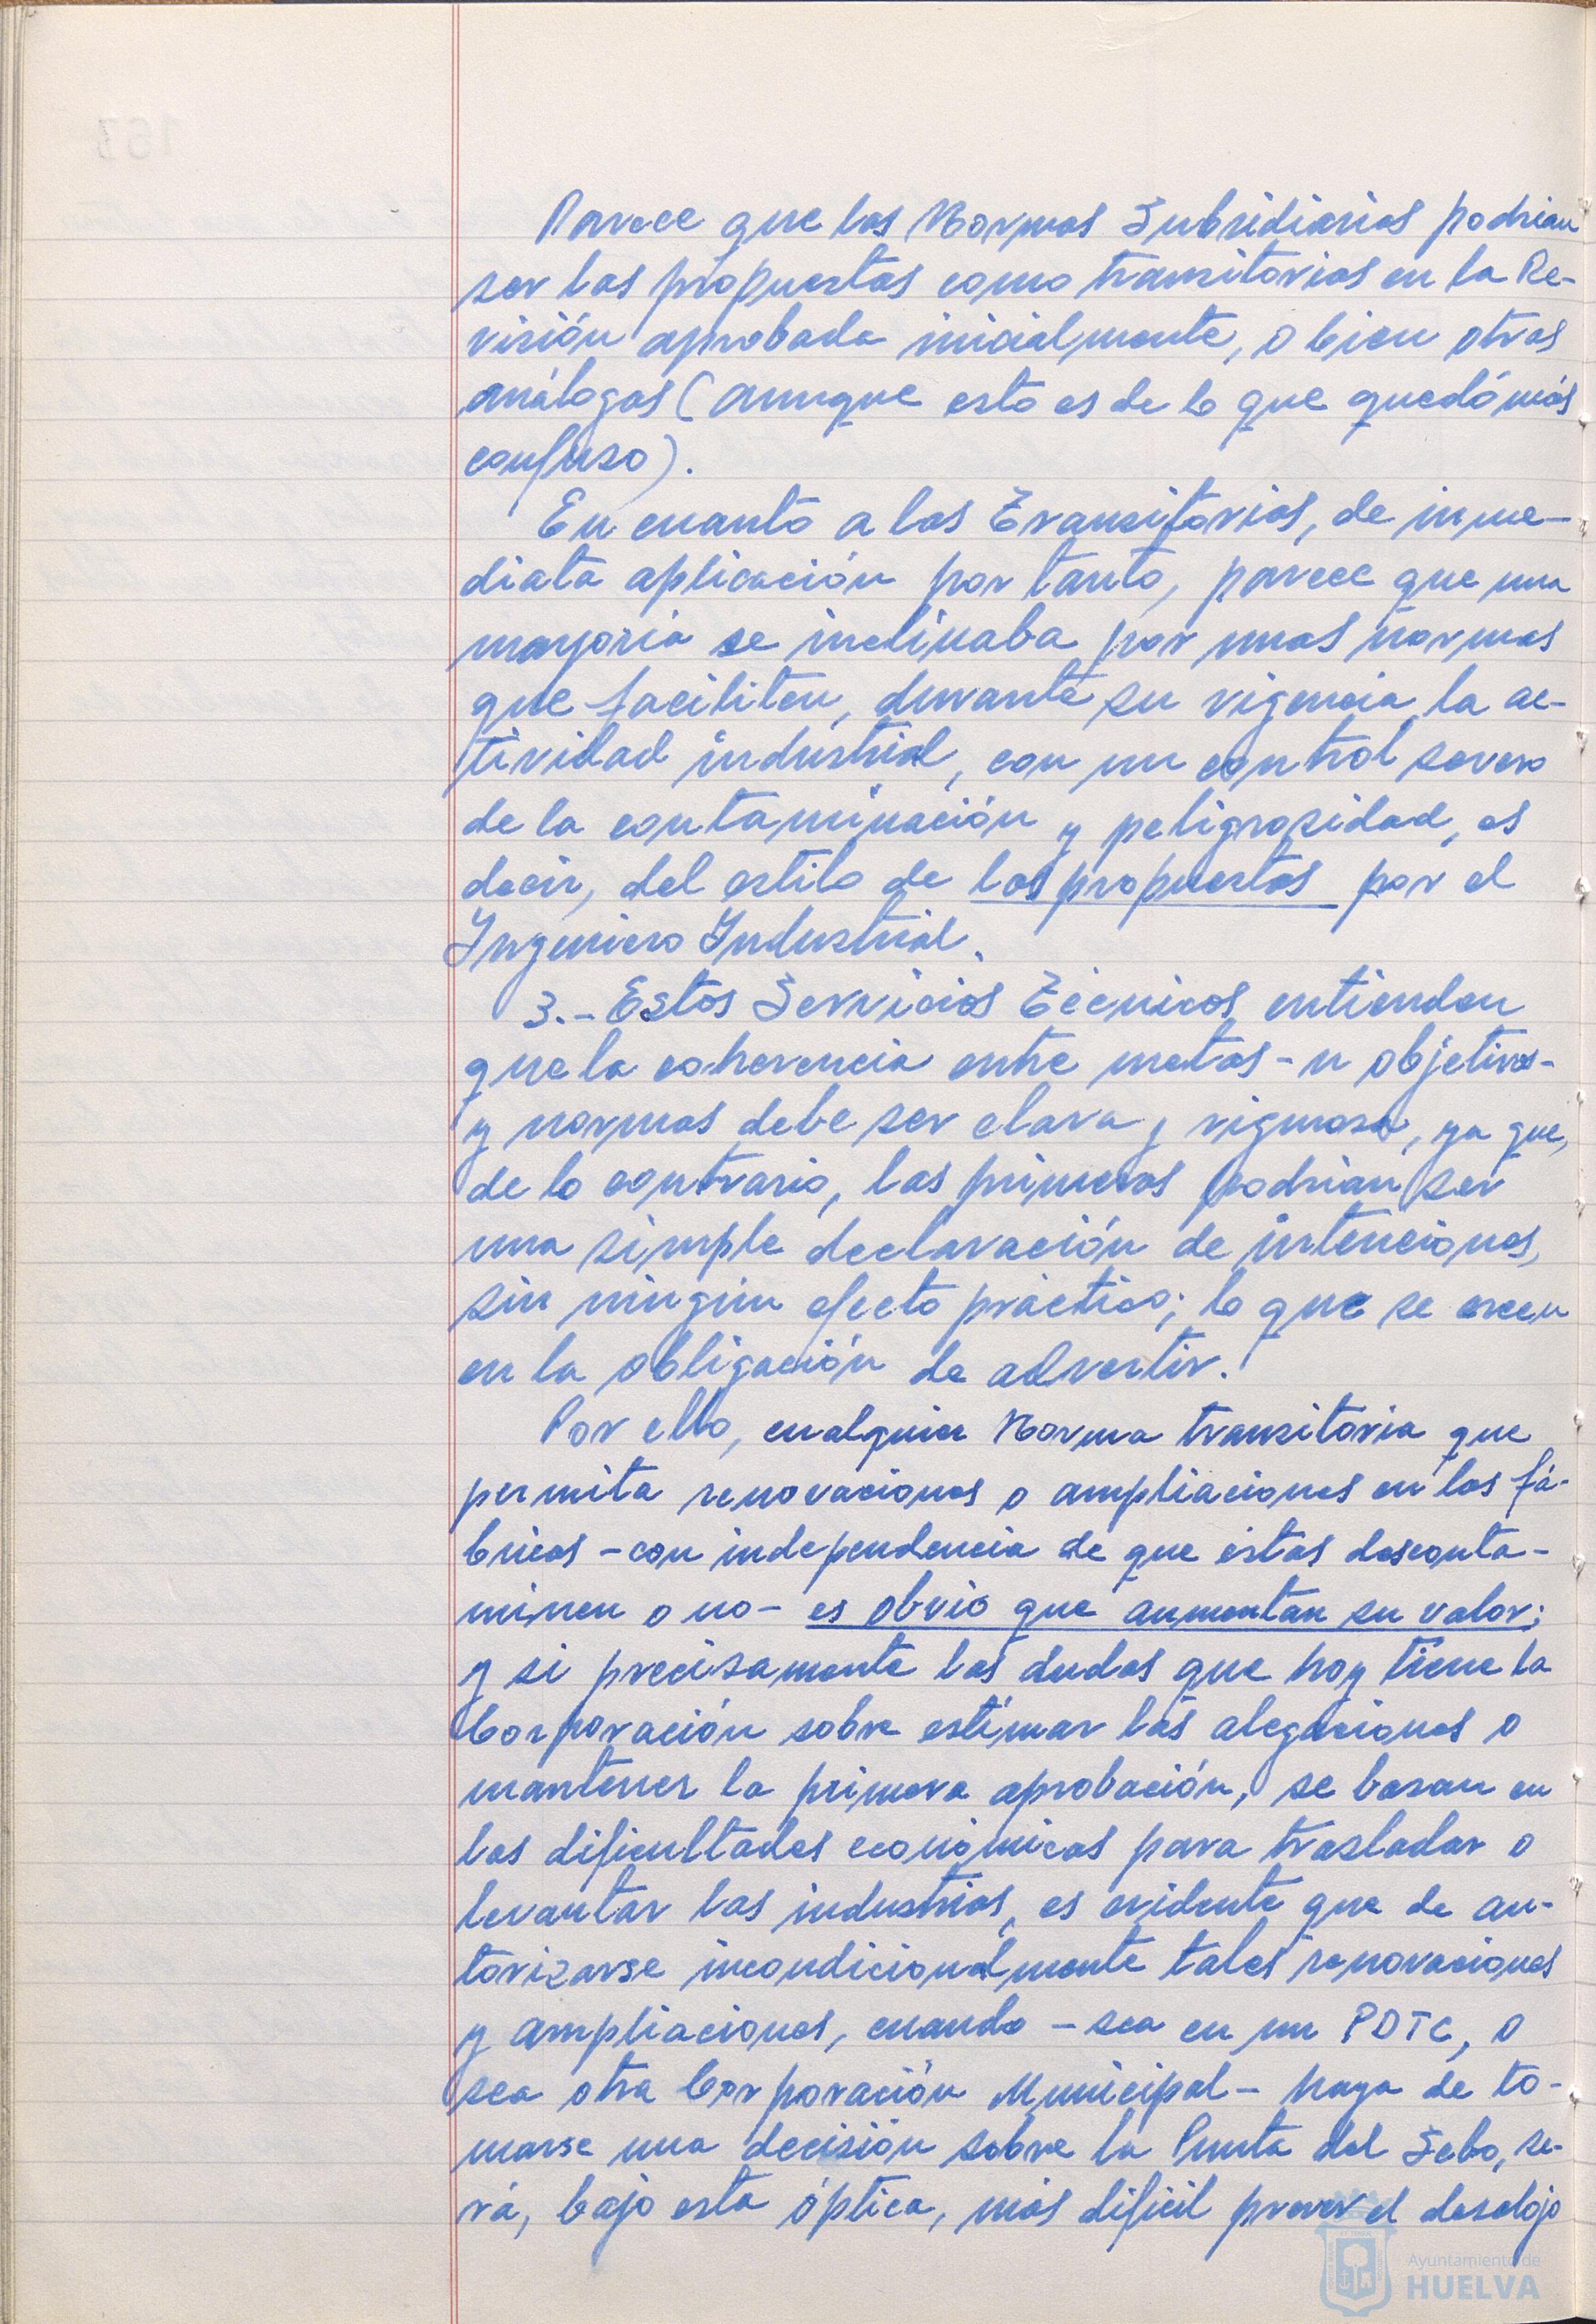 Parece que las Normas Subsidiarias podrian
ser las propuestas como transitorias en la Re-
visión aprobada inicialmente, o bien otras
análogas (aunque esto es de lo que quedó más
confuso).
En cuanto a las Transitorias, de inme-
diata aplicación por tanto, parece que una
mayoría se inclinaba por unas normas
que faciliten, durante su vigencia, la ac-
tividad industrial, con un control severo
de la contaminación y peligrosidad, es
decir, del estilo de las propuestas por el
Ingeniero Industrial.
3.- Estos Servicios Técnicos entienden
que la coherencia entre metas - u objetivos -
y normas debe ser clara y rigurosa, ya que,
de lo contrario, las primeras podrian ser
una simple declaración de intenciones,
sin ningún efecto práctico; lo que se creen
en la obligación de advertir.
Por ello, cualquier Norma transitoria que
permita renovaciones o ampliaciones en las fá-
bricas - con independencia de que éstas desconta-
minen o no - es obvio que aumentan su valor;
y si precisamente las dudas que hoy tiene la
Corporación sobre estimar las alegaciones o
mantener la primera aprobación, se basan en
las dificultades económicas para trasladar o
levantar las industrias, es evidente que de au-
torizarse incondicionalmente tales renovaciones
y ampliaciones, cuando - sea en un PDTC, o
sea otra Corporación Municipal - haya de to-
marse una decisión sobre la Punta del Sebo, se-
rá, bajo esta óptica, más difícil prever el desalojo
Ayuntamiento de
HUELVA